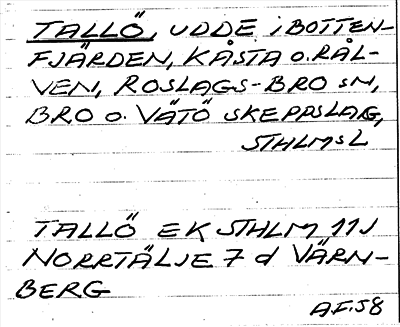 TALLÖ, UDDE I BOTTEN-
FJÄRDEN, KÅSTA O. RÅL-
VEN, ROSLAGS-BRO SN,
BRO O. VÄTÖ SKEPPSLAG,
STHLMS L
TALLÖ EK STHLM 11J
NORRTÄLJE 7 d VÄRN-
BERG
A.F. 58